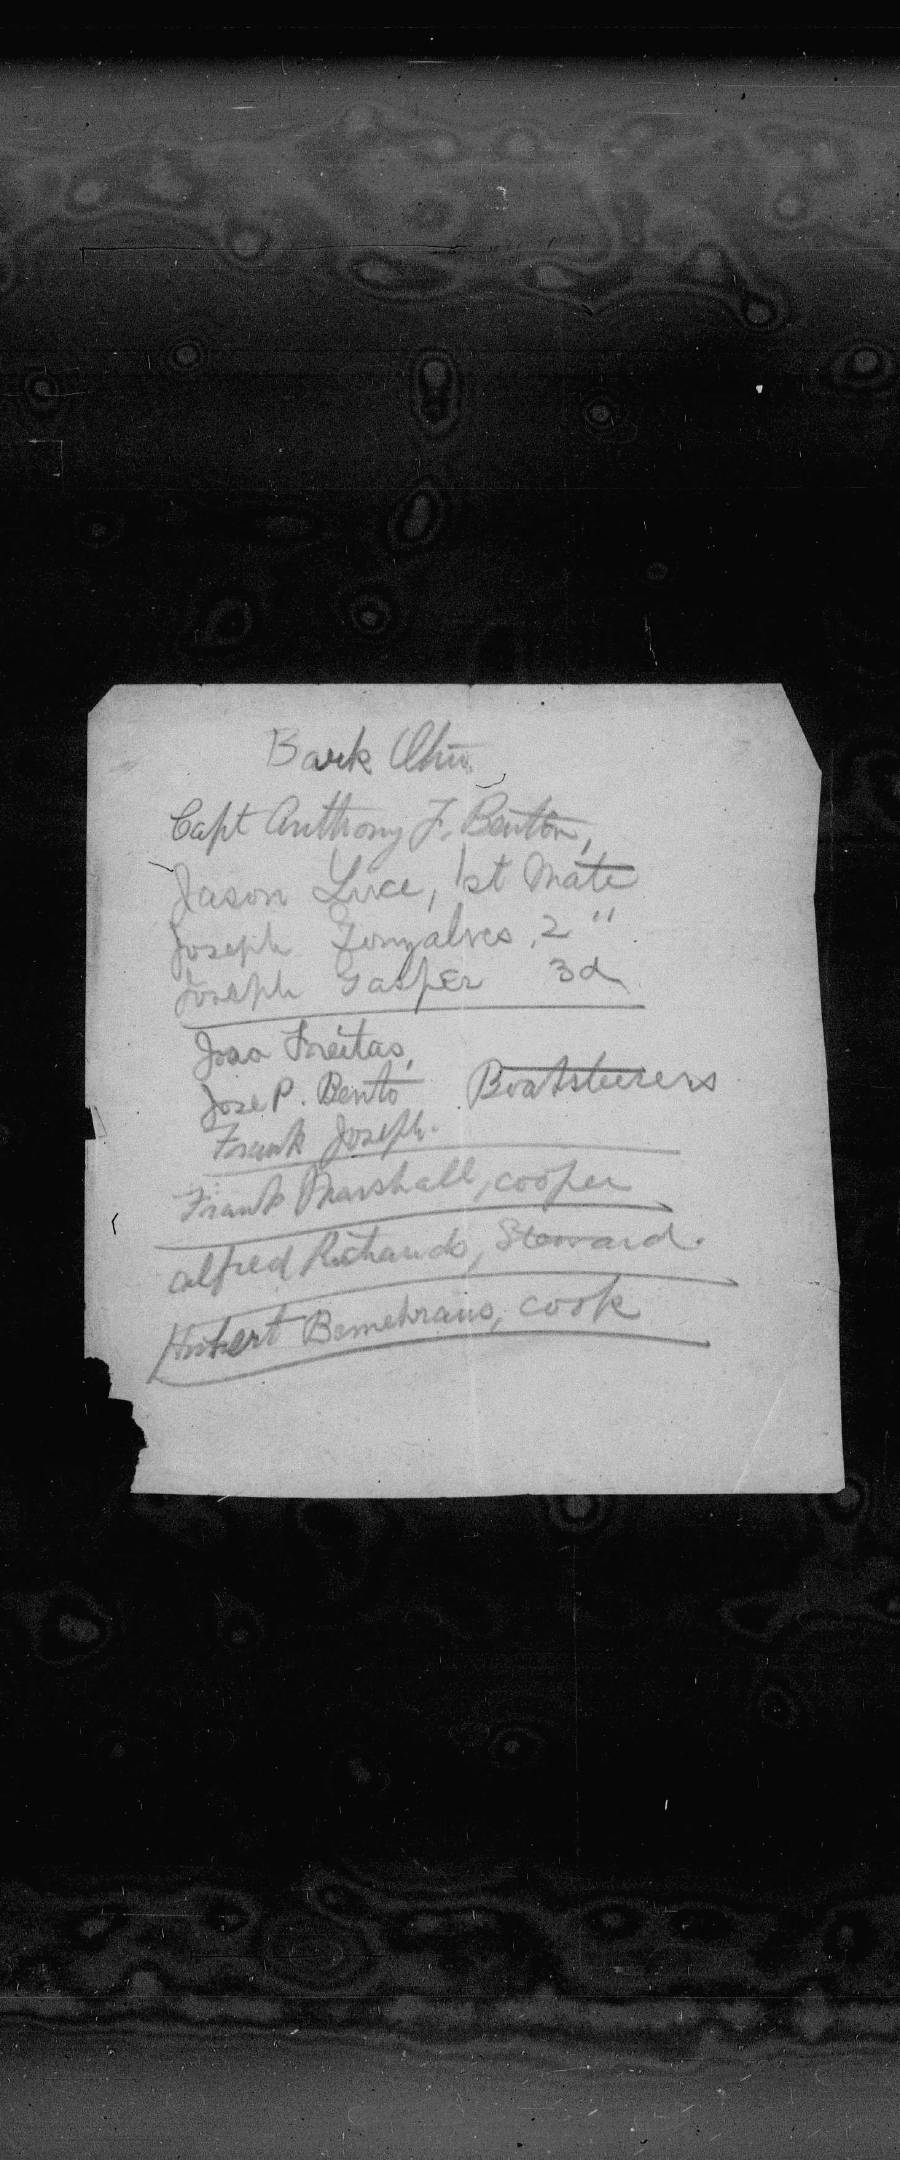 Bark Ohio.
Capt Anthony J. Benton,
Jason Luce, 1st Mate
Joseph Gonzalves, 2 "
Joseph Gasper 3d
Joao Freitas,
Jose P. Bento Boatsteerers
Frank Joseph.
Frank Marshall, cooper
Alfred Richards, Steward.
Hubert, cook